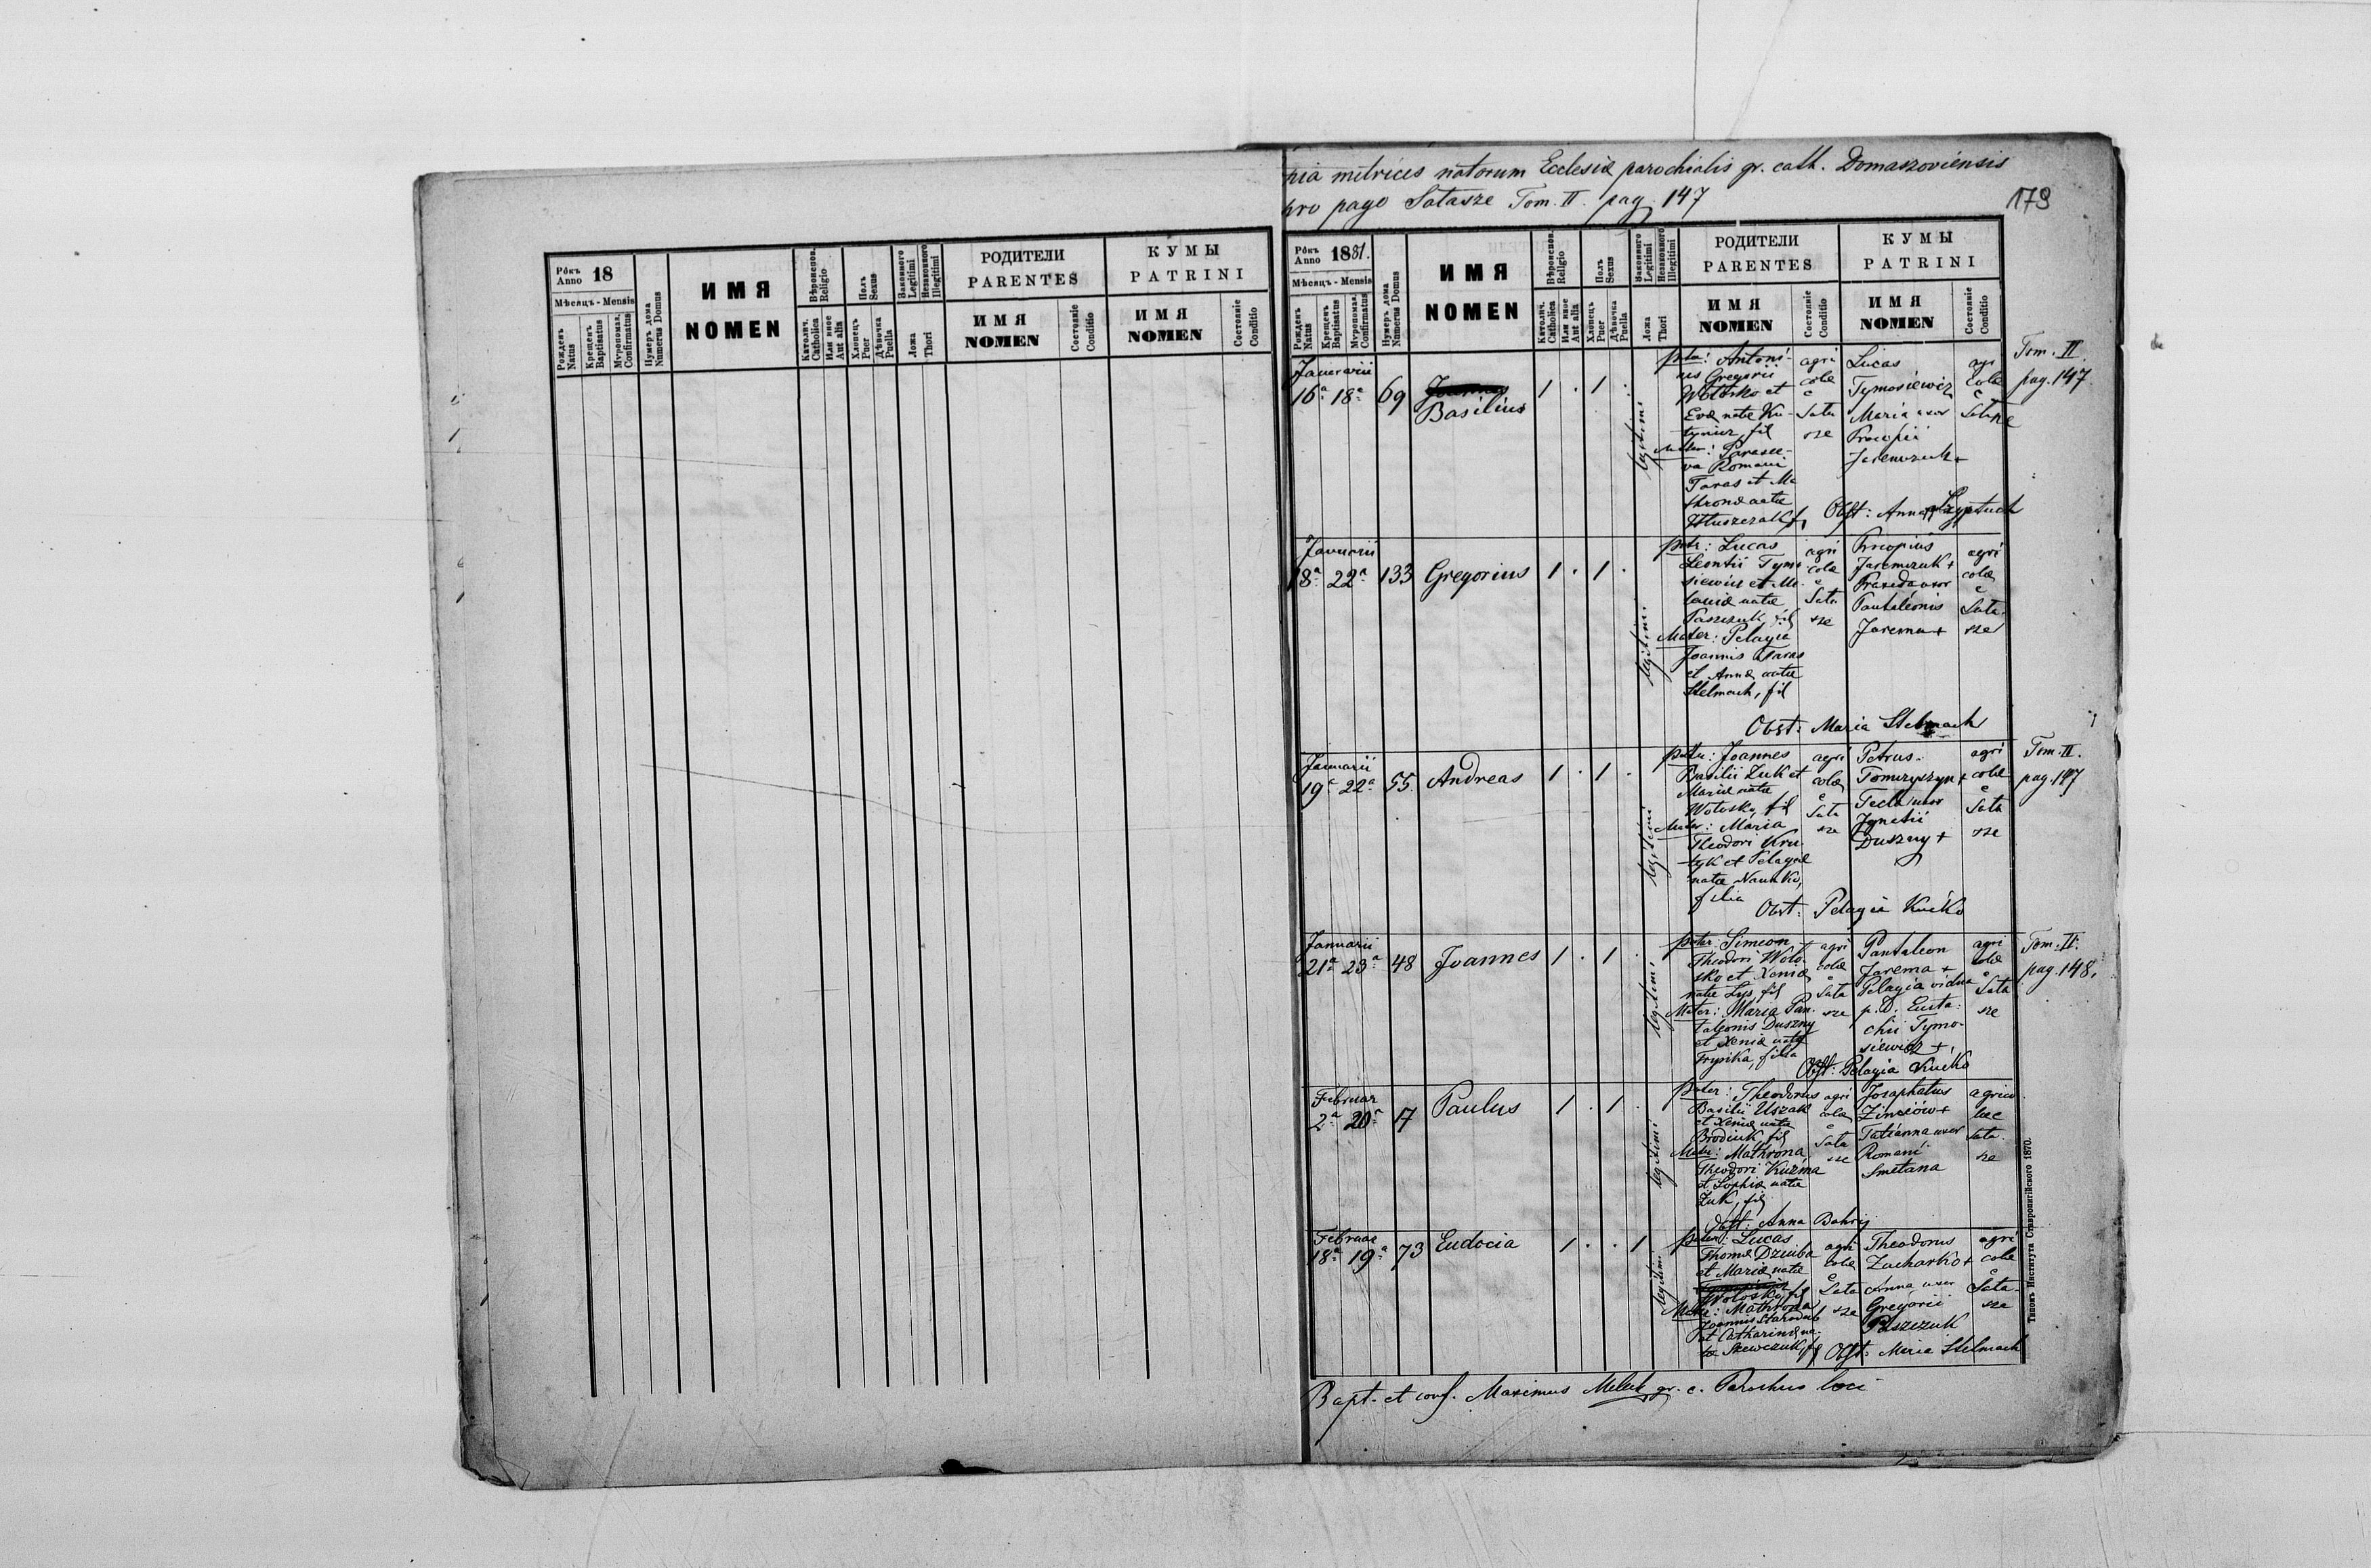 pia metrices natorum Ecclesiæ parochialis gr. cath. Domaszoviensis
pro pago Sałasze Tom. II. pag. 147
179
Рôкъ Anno 18
Мѣсяцъ - Mensis
Рожденъ Natus
Крещенъ Baptisatus
Муропомаз. Confirmatus
Нумеръ дома Numerus Domus
ИМЯ
NOMEN
Вѣроиспов. Religio
Католич. Catholica
Или иное Aut alia
Полъ Sexus
Хлопецъ Puer
Дѣвочка Puella
Законного Legitimi
Незаконного Illegitimi
Ложа Thori
РОДИТЕЛИ
PARENTES
ИМЯ
NOMEN
Состояніе Conditio
КУМЫ
PATRINI
ИМЯ
NOMEN
Состояніе Conditio
Рôкъ Anno 1881.
Мѣсяцъ - Mensis
Рожденъ Natus
Крещенъ Baptisatus
Муропомаз. Confirmatus
Нумеръ дома Numerus Domus
ИМЯ
NOMEN
Вѣроиспов. Religio
Католич. Catholica
Или иное Aut alia
Полъ Sexus
Хлопецъ Puer
Дѣвочка Puella
Законного Legitimi
Незаконного Illegitimi
Ложа Thori
РОДИТЕЛИ
PARENTES
ИМЯ
NOMEN
Состояніе Conditio
КУМЫ
PATRINI
ИМЯ
NOMEN
Состояніе Conditio
Januarii
16ª 18ª 69
Joannes
Basilius
1 . 1 .
legitimi
Pater: Antoni-
us Gregorii
Wołosko et
Evæ natæ Ku-
tynicz, fil
Mater: Parasce-
va Romani
Taras et Ma
thronæ natæ
agri
colæ
è
Sała
sze
Lucas
Tymosiewicz
Maria uxor
Procopii
Jaremczuk +
agri
colæ
è
Obst: Anna
Tom. II.
pag. 147.
Januarii
18ª 22ª 133 Gregorius 1 . 1 .
legitimi
Pater: Lucas
Leontii Tymo
siewicz et Me-
laniæ natæ
Paszczuk, fil
Mater: Pelagia
Joannis Taras
et Annæ natæ
Stelmach, fil
agri
colæ
è
Sała
sze
Procopius
Jaremczuk +
Praxeda uxor
Pantaleonis
Jarema +
agri
colæ
è
Sała-
sze
Obst: Maria Stelmach
Januarii
19ª 22ª 55 Andreas 1 . 1 .
legitimi
Pater: Joannes
Basilii Żuk et
Mariæ natæ
Wołosko, fil
Mater: Maria
Theodori Kru
tyk et Pelagiæ
natæ
filia
agri
colæ
è
Sała
sze
Petrus
Tomczyszyn +
Tecla uxor
Ignatii
Duszny +
agri
colæ
è
Sała
sze
Obst: Pelagia Kućko
Tom. II.
pag. 147
Januarii
21ª 23ª 48 Joannes 1 . 1 .
legitimi
Pater: Simeon
Theodori Woło
sko et Xeniæ
natæ Lys, fil
Mater: Maria Pan-
taleonis Duszny
et Xeniæ natæ
filia
agri
colæ
è
Sała
sze
Pantaleon
Jarema +
Pelagia vidua
p. D. Eusta-
chii Tymo-
siewicz +,
agri
colæ
è
Sała
sze
Obst: Pelagia Kućko
Tom: II.
pag. 148.
Februar
2ª 20ª 17 Paulus 1 . 1 .
legitimi
Pater: Theodorus
Basilii Uszak
et Xeniæ natæ
Brodiuk, fil
Mater: Mathrona
Theodori Kuźma
et Sophiæ natæ
Żuk, fil
agri
colæ
è
Sała
sze
Josaphatus
Zinciów +
Tatianna uxor
Romani
Smetana
agrico
læ è
Sała-
sze
Obst: Anna Bohrij
Februar
18ª 19ª 73 Eudocia 1 . . 1
legitimi
Pater: Lucas
Thomæ Dziuba
et Mariæ natæ
Wołosko, fil
Mater: Mathrona
Joannis
et Catharinæ na-
tæ Szewczuk, fil
agri
colæ
è
Sała
sze
Theodorus
Zacharko +
Anna uxor
Gregorii
Paszczuk
agri
colæ
è
Sała-
sze
Obst: Maria Stelmach
Bapt. et conf. Maximus gr. c. Parochus loci
Типомъ Института Ставропигійского 1870.